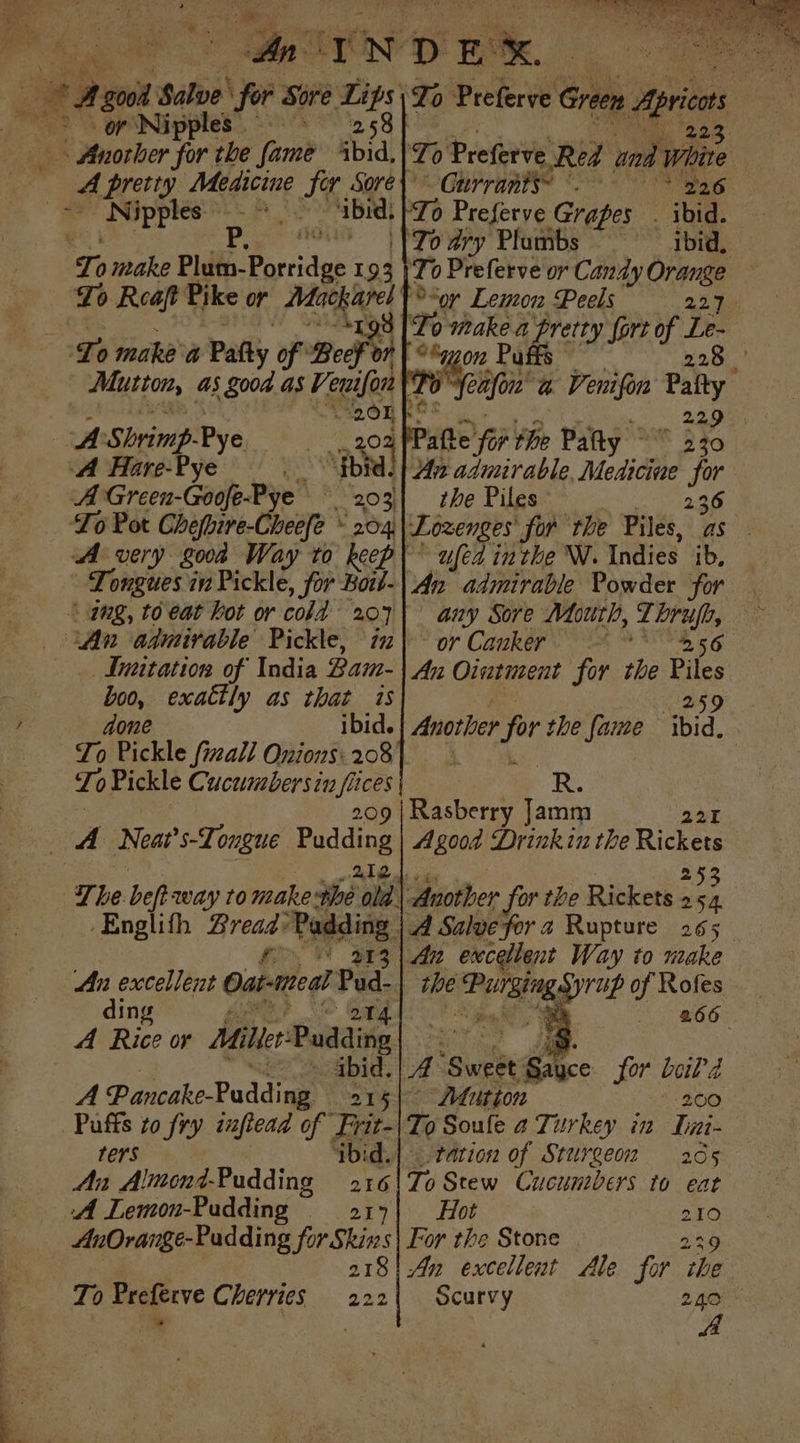 An INDEX.
A good Salve for Sore Lips
or Nipples 258
Another for the ſame ibid.
A pretty Medicine for Sore
Nipples ibid.
P.
To make Plum-Porridge 193
To Roaſt Pike or Mackarel
198
To make a Paſty of Beef or
Mutton, as good as Veniſon
201
A Shrimp-Pye 202
A Hare-Pye ibid.
A Green-Gooſe-Pye 203
To Pot Cheſhire-Cheeſe 204
A very good Way to keep
Tongues in Pickle, for Boil-
ing, to eat hot or cold 207
An admirable Pickle, in
Imitation of India Bam-
boo, exactly as that is
done ibid.
To Pickle ſmall Onions 208
To Pickle Cucumbers in ſlices
209
A Neat's-Tongue Pudding
212
The beſt way to make the old
Engliſh Bread-Pudding
213
An excellent Oat-meal Pud-
ding 214
A Rice or Millet-Pudding
ibid.
A Pancake-Pudding 215
Puffs to fry inſtead of Frit-
ters ibid.
An Almond-Pudding 216
A Lemon-Pudding 217
An Orange-Pudding for Skins
218
To Preſerve Cherries 222
To Preſerve Green Apricots
223
To Preſerve Red and White
Currants 226
To Preſerve Grapes ibid.
To dry Plumbs ibid.
To Preſerve or Candy Orange
or Lemon Peels 227
To make a pretty ſort of Le-
mon Puffs 228
To ſeaſon a Veniſon Paſty
229
Paſte for the Paſty 230
An admirable Medicine for
the Piles 236
Lozenges for the Piles, as
uſed in the W. Indies ib.
An admirable Powder for
any Sore Mouth, Thruſh,
or Canker 256
An Ointment for the Piles
259
Another for the ſame ibid.
R.
Rasberry Jamm 221
A good Drink in the Rickets
253
Another for the Rickets 254
A Salve for a Rupture 265
An excellent Way to make
the Purging Syrup of Roſes
266
S.
A Sweet Sauce for boil'd
Mutton 200
To Souſe a Turkey in Imi-
tation of Sturgeon 205
To Stew Cucumbers to eat
Hot 210
For the Stone 239
An excellent Ale for the
Scurvy 240
A